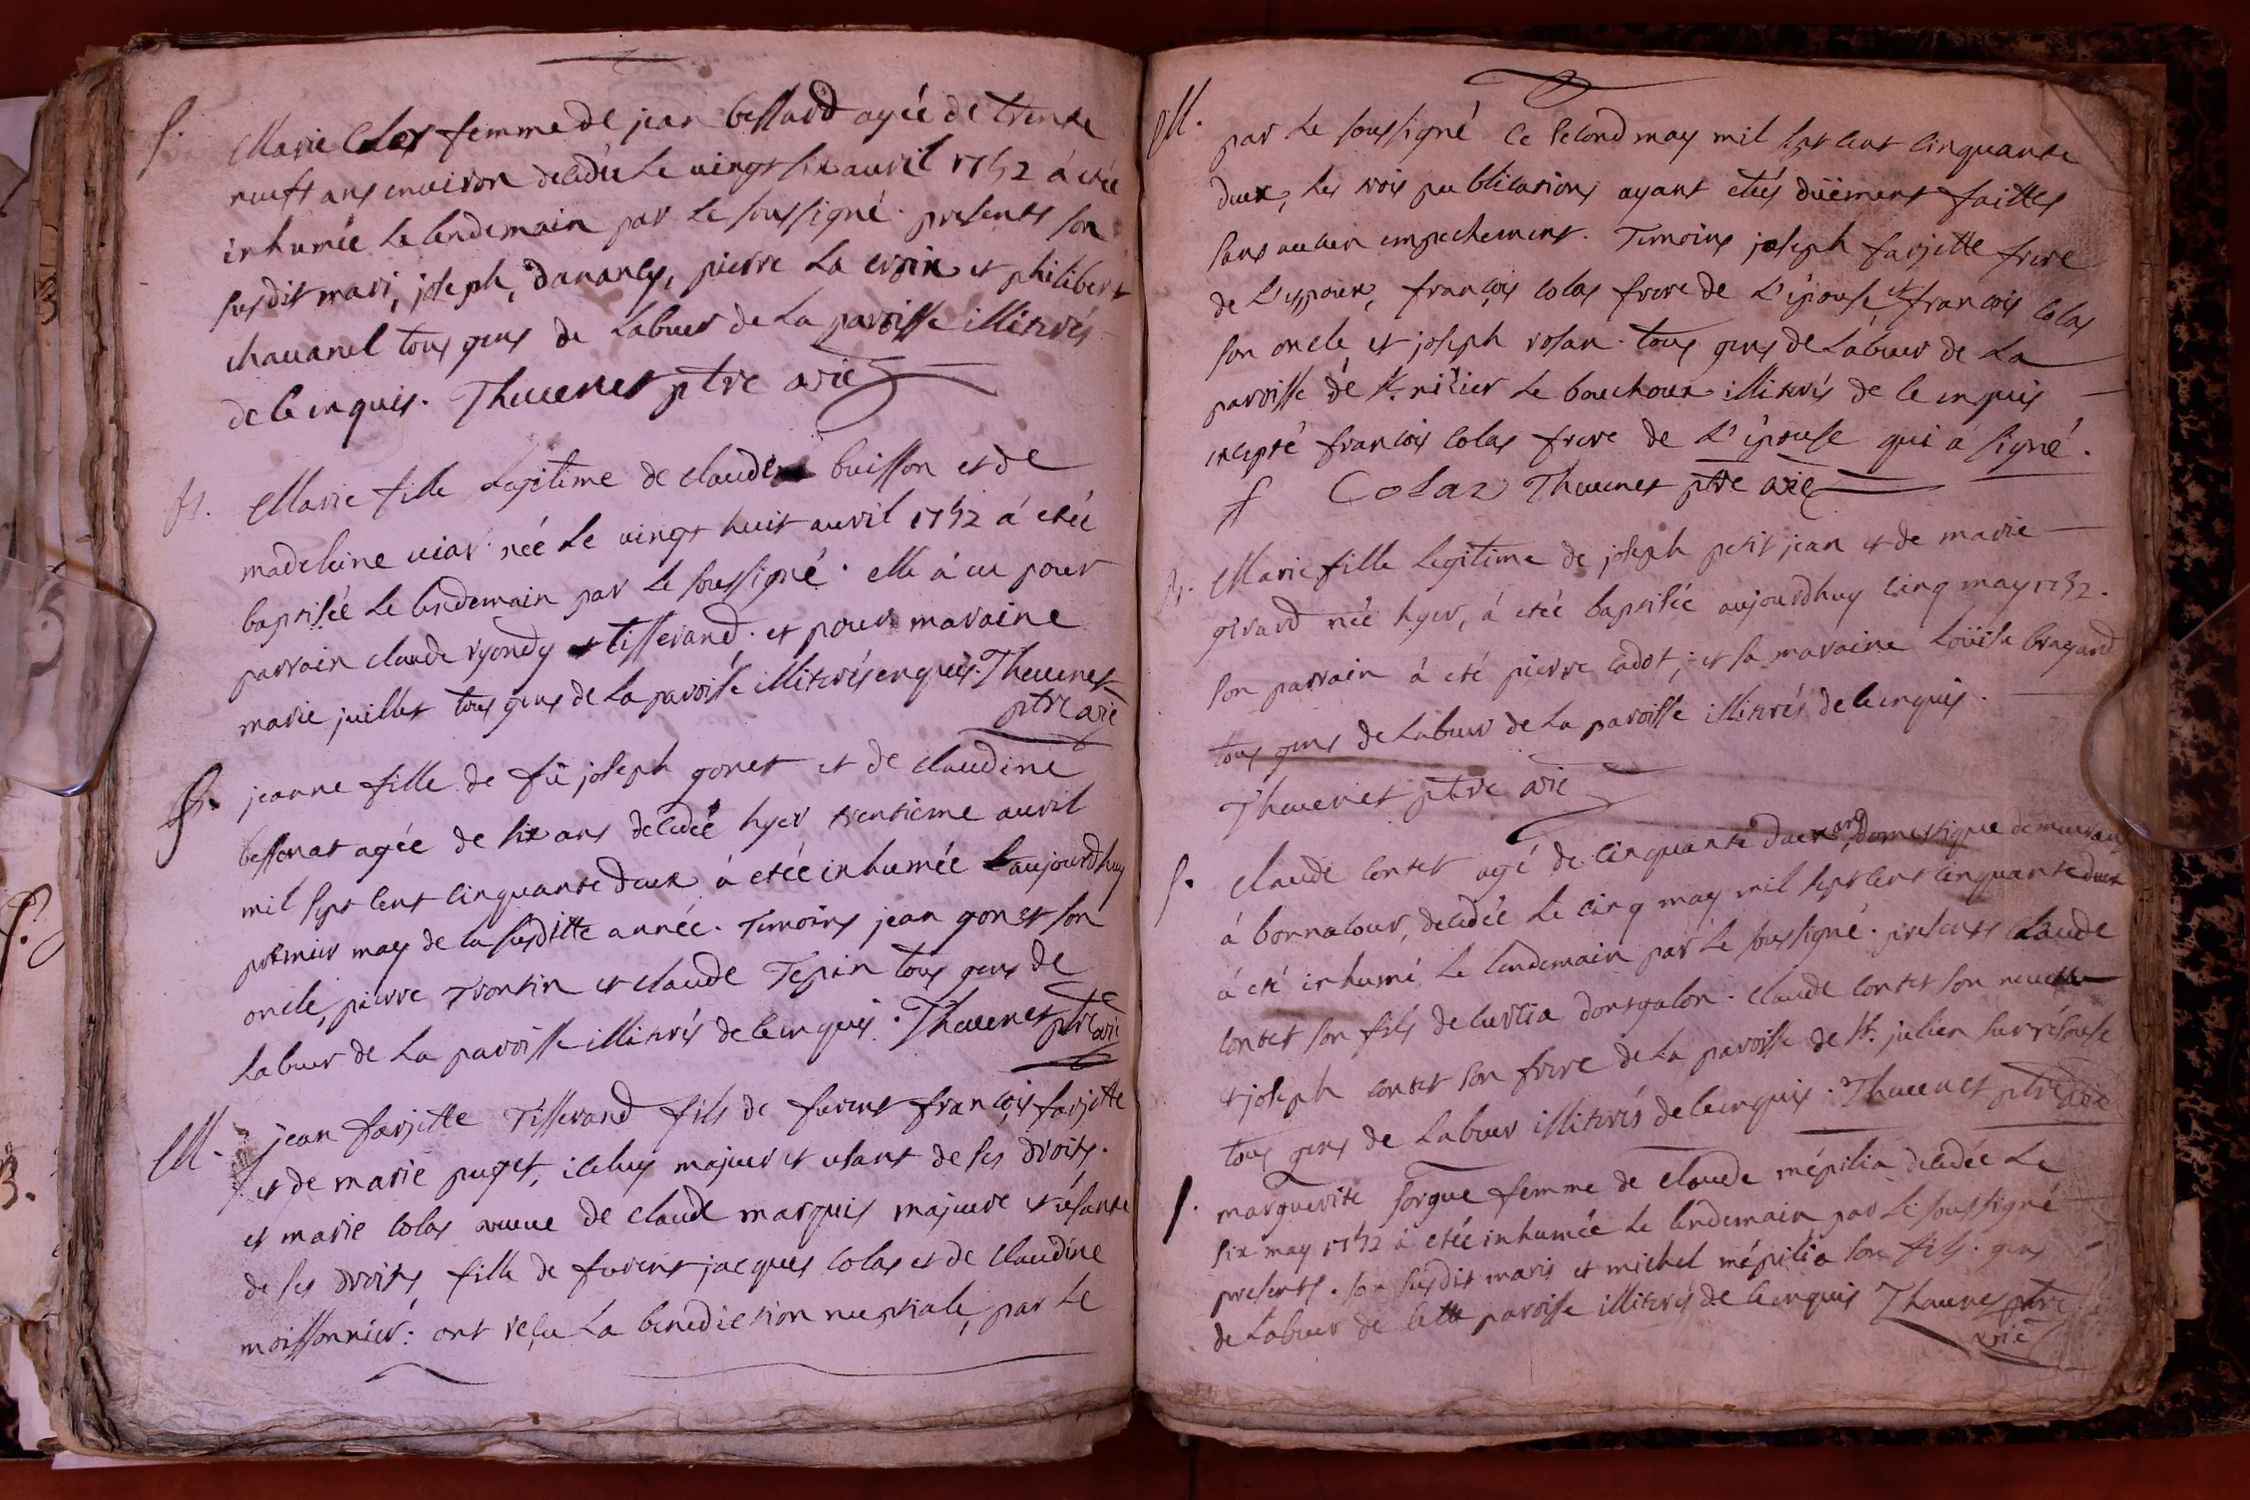 S. Marie Colas femme de jean bessard agée de trente
neuft ans environ decedée le vingt six auvril 1752 á etée
inhumée le lendemain par le soussigné. presents son
susdit mari, joseph, dananchy, pierre la croix et philibert
chavanel tous gens de labeur de la paroisse illiterés
de ce inquis. Thevenet ptre vic
B. Marie fille Legitime de claude buisson et de
madeleine viar née le vingt huit auvril 1752 á etée
baptisée le lendemain par le soussigné. elle á eu pour
parrain claude ryondy tisserand. et pour maraine
marie juillet tous gens de la paroisse illiterés enquis. Thevenet
ptre vic
S. jeanne fille de fû joseph gonet et de claudine
bessonat agée de six ans decedée hyer trentieme auvril
mil sept cent cinquante deux á etée inhumée aujourdhuy
premier may de la susditte année. Temoins jean gonet son
oncle, pierre Trontin et claude Tepin tous gens de
labeur de la paroisse illiterés de ce inquis. Thevenet ptre vic
M. jean farjette Tisserand fils de furent françois farjette
et de marie puget, iceluy majeur et usant de ses droits.
et marie colas veuve de claude marquis majeure et usante
de ses droits, fille de furent jacques colas et de claudine
moissonnier: ont reçu la benediction nuptiale, par le
M. par le soussigné ce second may mil sept cent cinquante
deux, les trois publications ayant etés düëment faittes
sans aucun empechement. Temoins joseph farjette frere
de L'espoux, françois colas frere de L'épouse et françois colas
son oncle, et joseph rosan. tous gens de labeur de la
paroisse de st. nizier le bouchoux illiterés de ce inquis
excepté francois colas frere de L'épouse qui á signé.
f Colaz Thevenet ptre vic
B. Marie fille legitime de joseph petit jean et de marie
girard née hyer, á etée baptisée aujourdhuy cinq may 1752.
son parrain á eté pierre cadot; et sa maraine Loüise bragard
tous gens de labeur de la paroisse illiterés de ce inquis.
Thevenet ptre vic
S. Claude contet agé de cinquante deux ans, domestique demeurant
á bonnacour, decedée le cinq may mil sept cent cinquante deux
á eté inhumé le lendemain par le soussigné. presents claude
contet son fils de curtia dongalon. claude contet son neveu
et joseph contet son frere de la paroisse de st. julien sur résouse
tous gens de labeur illiterés de ce inquis. Thevenet ptre vic
S. marguerite sorgue femme de claude mépilia decedée le
six may 1752 á etée inhumée le lendemain par le soussigné
presents. son susdit maris et michel mépilia son fils. gens
de labeur de cette paroisse illiterés de ce inquis Thevenet ptre
vic